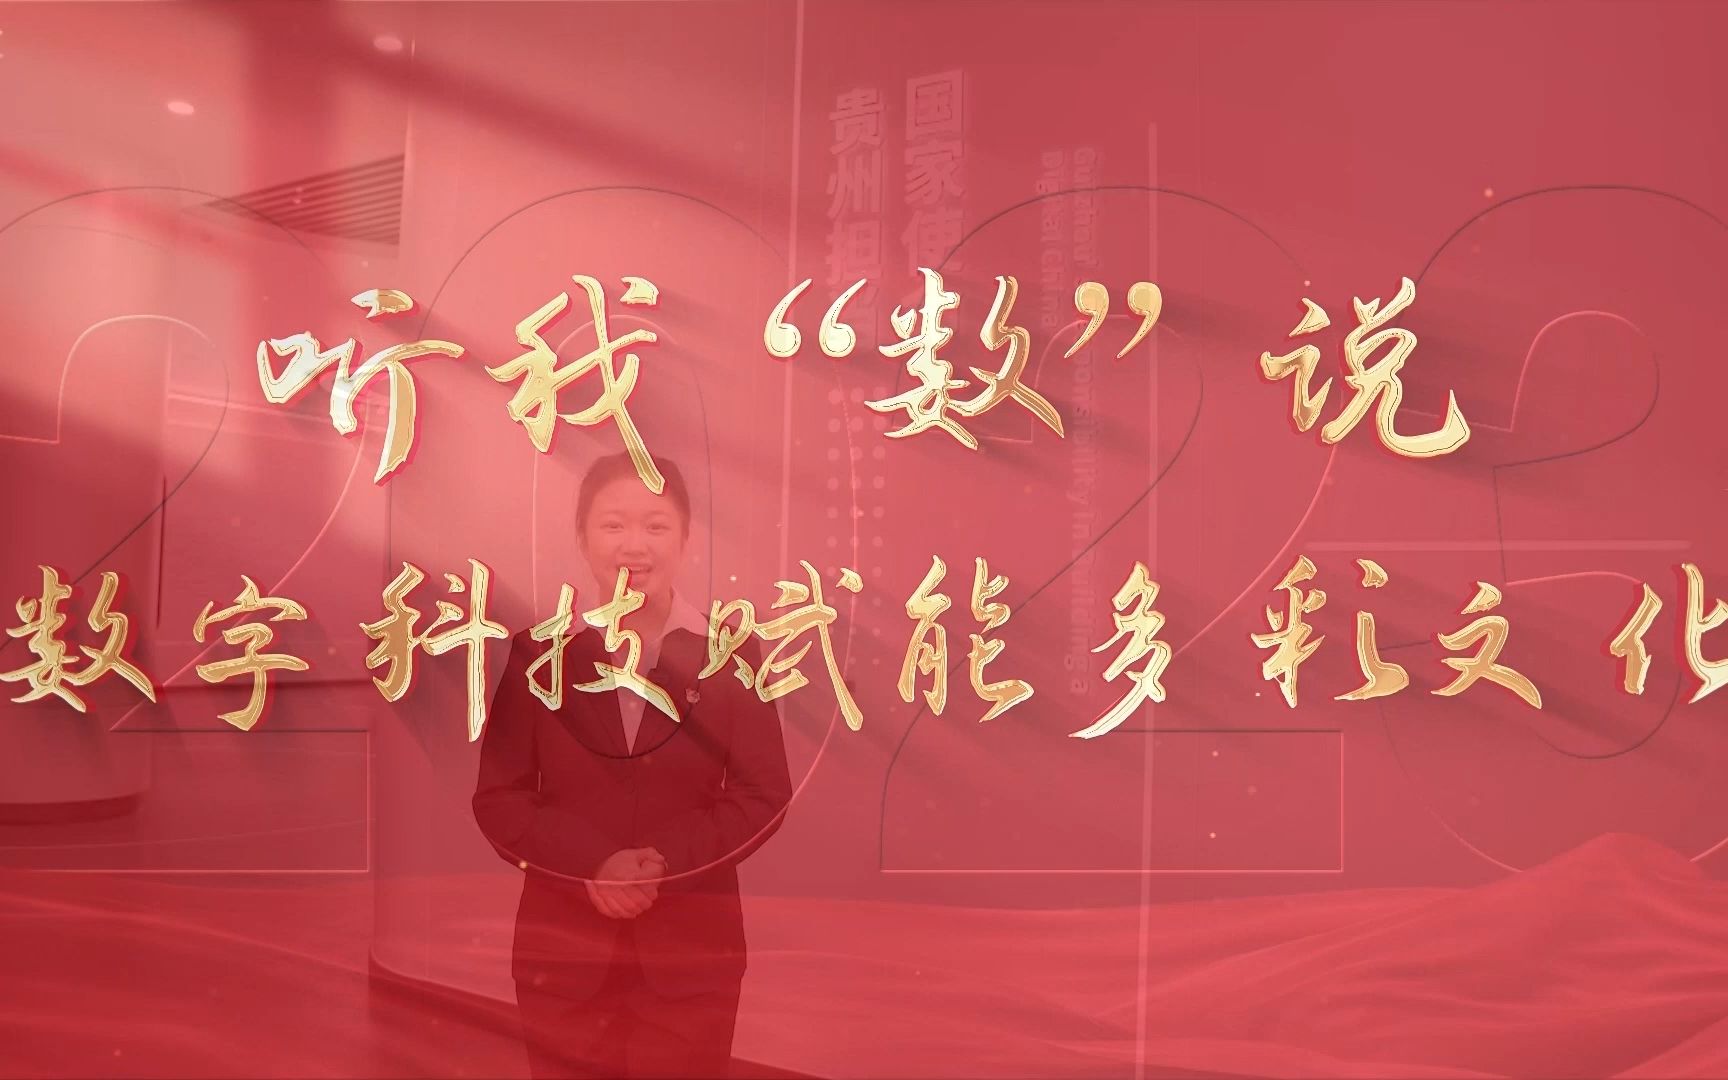 听我“数”说
数字科技赋能多彩文化
2023
国家使
贵州担
Guizhou's Responsibility in Building a
Digital China